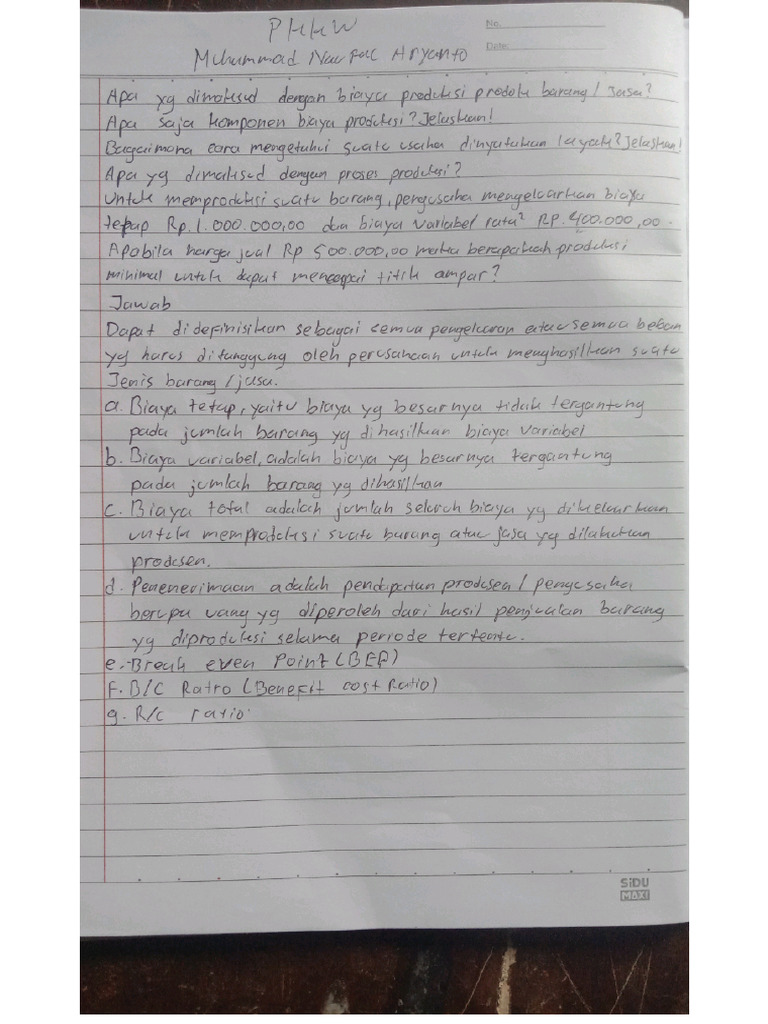 PKKW
No.
Muhammad Naufal Aryanto
Date:
Apa yg dimaksud dengan biaya produksi produk barang/Jasa?
Apa saja komponen biaya produksi? Jelaskan!
Bagaimana cara mengetahui suatu usaha dinyatakan layak? Jelaskan!
Apa yg dimaksud dengan proses produksi?
Untuk memproduksi suatu barang, pengusaha mengeluarkan biaya
tetap Rp. 1.000.000,00 dan biaya variabel rata² Rp. 400.000,00.
Apabila harga jual Rp 500.000,00 maka berapakah produksi
minimal untuk dapat mencapai titik ampar?
Jawab
Dapat didefinisikan sebagai semua pengeluaran atau semua beban
yg harus ditanggung oleh perusahaan untuk menghasilkan suatu
Jenis barang/jasa.
a. Biaya tetap, yaitu biaya yg besarnya tidak tergantung
pada jumlah barang yg dihasilkan biaya variabel
b. Biaya variabel, adalah biaya yg besarnya tergantung
pada jumlah barang yg dihasilkan
c. Biaya total adalah jumlah seluruh biaya yg dikeluarkan
untuk memproduksi suatu barang atau jasa yg dilakukan
produsen.
d. Penenerimaan adalah pendapatan produsen/pengusaha
berupa uang yg diperoleh dari hasil penjualan barang
yg diproduksi selama periode tertentu.
e. Break even Point (BEP)
f. B/C Ratro (Benefit cost Ratio)
g. R/c ratio
SiDU
MAXI